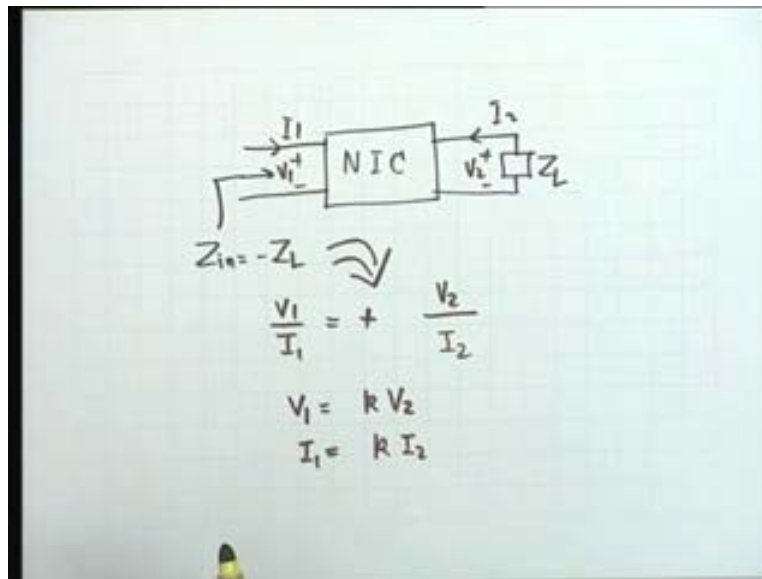 I1 I2
V1 + - NIC V2 + - ZL
Zin = -ZL
V1/I1 = + V2/I2
V1 = k V2
I1 = k I2